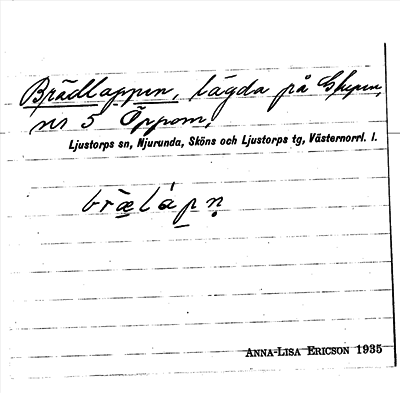 Brädlappen, lägda på Skepen,
nr 5 Öppom,
Ljustorps sn, Njurunda, Sköns och Ljustorps tg, Västernorrl. l.
brælápn̥
ANNA-LISA ERICSON 1935